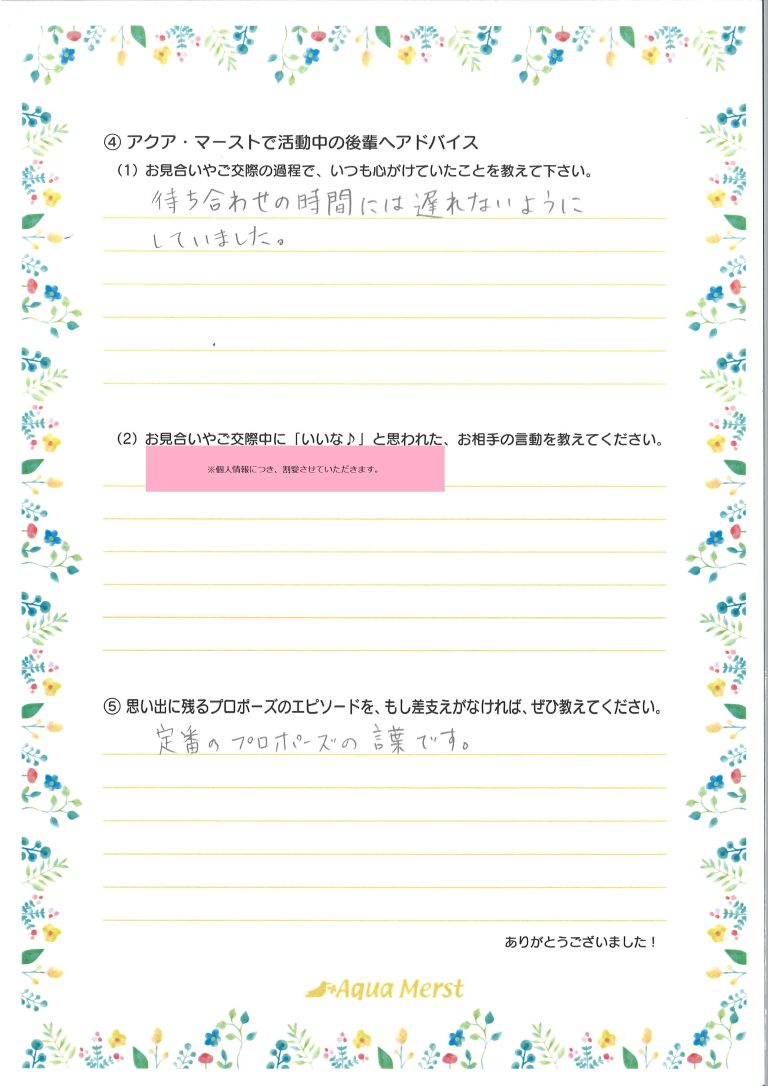 ④ アクア・マーストで活動中の後輩へアドバイス
（1）お見合いやご交際の過程で、いつも心がけていたことを教えて下さい。
待ち合わせの時間には遅れないように
していました。
（2）お見合いやご交際中に「いいな♪」と思われた、お相手の言動を教えてください。
※個人情報につき、割愛させていただきます。
⑤ 思い出に残るプロポーズのエピソードを、もし差支えがなければ、ぜひ教えてください。
定番のプロポーズの言葉です。
ありがとうございました！
Aqua Merst